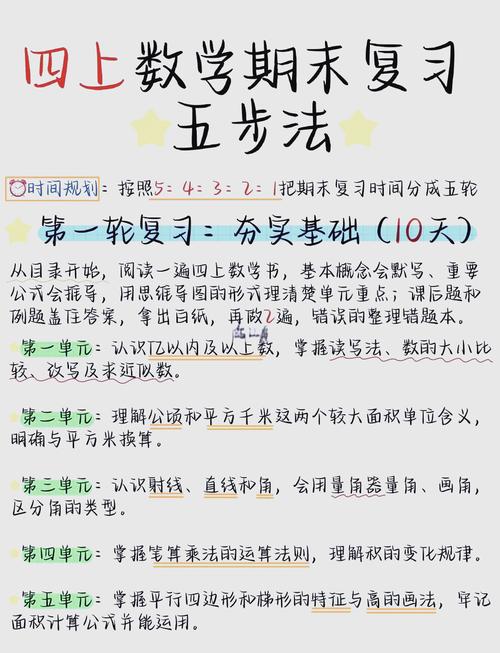 四上数学期末复习
五步法
时间规划：按照5:4:3:2:1把期末复习时间分成五轮
第一轮复习：夯实基础（10天）
从目录开始，阅读一遍四上数学书，基本概念会默写、重要
公式会推导，用思维导图的形式理清楚单元重点；课后题和
例题盖住答案，拿出白纸，再做2遍，错误的整理错题本。
第一单元：认识亿以内及以上数，掌握读写法、数的大小比
较、改写及求近似数。
第二单元：理解公顷和平方千米这两个较大面积单位含义，
明确与平方米换算。
第三单元：认识射线、直线和角，会用量角器量角、画角，
区分角的类型。
第四单元：掌握笔算乘法的运算法则，理解积的变化规律。
第五单元：掌握平行四边形和梯形的特征与高的画法，牢记
面积计算公式并能运用。